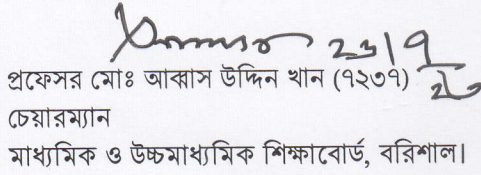 23/9
প্রফেসর মোঃ আব্বাস উদ্দিন খান (৭২৩৭)
চেয়ারম্যান
মাধ্যমিক ও উচ্চমাধ্যমিক শিক্ষাবোর্ড, বরিশাল।